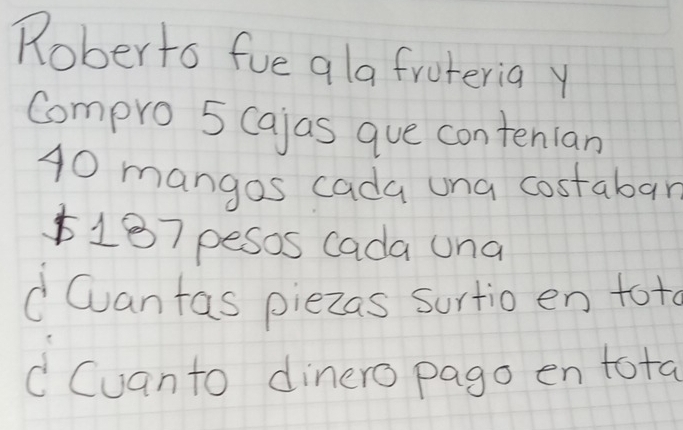 Roberto fue a la fruteria y
Compro 5 cajas que contenian
40 mangos cada una costaban
$187 pesos cada una
¿Cuantas piezas surtio en tota
¿Cuanto dinero pago en tota